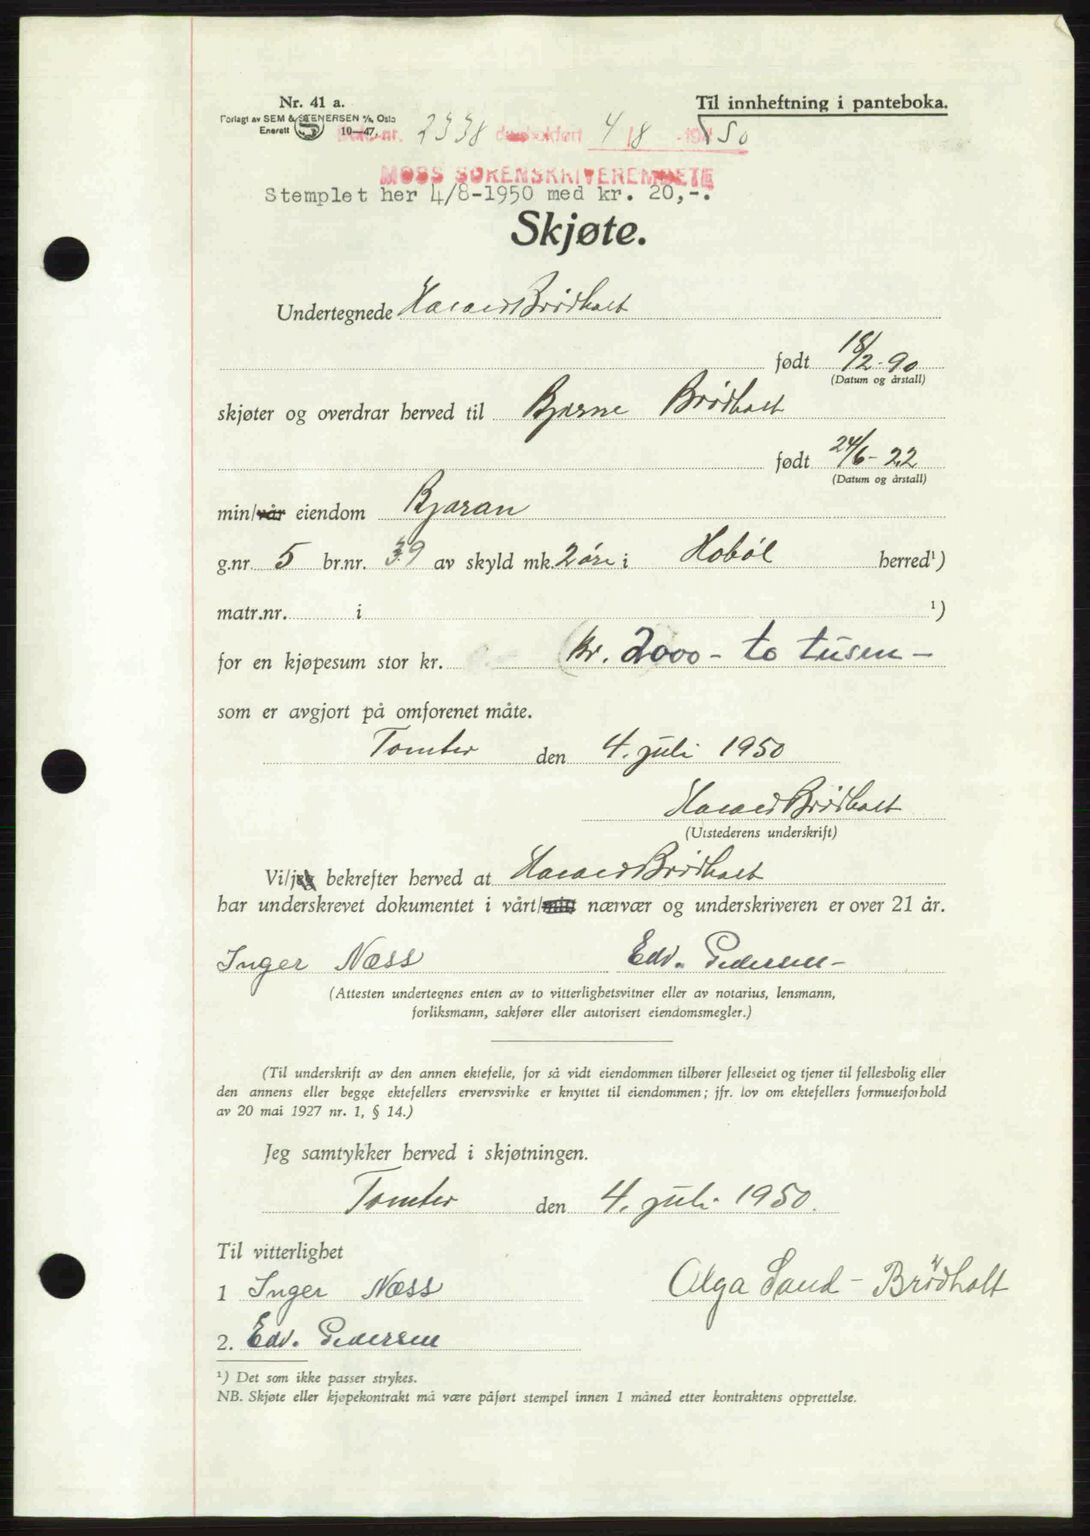 Nr. 41 a.
Forlagt av SEM & STENERSEN A/S, Oslo
Enerett 10—47.
Til innheftning i panteboka.
Dok.nr. 2338 dagbokført 4/8 -1950
MOSS SORENSKRIVEREMBETE
Stemplet her 4/8-1950 med kr. 20,-.
Skjøte.
Undertegnede Harald Brödholt
født 18/2-90
(Datum og årstall)
skjøter og overdrar herved til Bjarne Brödholt
født 24/6-22
(Datum og årstall)
min/vår eiendom Bjaran
g.nr. 5 br.nr. 39 av skyld mk. 2 øre i Hobøl herred¹)
matr.nr. i ¹)
for en kjøpesum stor kr. (kr. 2000 - to tusen -
som er avgjort på omforenet måte.
Tomter den 4. juli 1950
Harald Brödholt
(Utstederens underskrift)
Vi/jeg bekrefter herved at Harald Brödholt
har underskrevet dokumentet i vårt/mitt nærvær og underskriveren er over 21 år.
Inger Næss Edv. Pedersen-
(Attesten undertegnes enten av to vitterlighetsvitner eller av notarius, lensmann,
forliksmann, sakfører eller autorisert eiendomsmegler.)
(Til underskrift av den annen ektefelle, for så vidt eiendommen tilhører felleseiet og tjener til fellesbolig eller
den annens eller begge ektefellers ervervsvirke er knyttet til eiendommen; jfr. lov om ektefellers formuesforhold
av 20 mai 1927 nr. 1, § 14.)
Jeg samtykker herved i skjøtningen.
Tomter den 4. juli 1950.
Til vitterlighet
1 Inger Næss Olga Sand - Brödholt
2. Edv. Pedersen
¹) Det som ikke passer strykes.
NB. Skjøte eller kjøpekontrakt må være påført stempel innen 1 måned etter kontraktens opprettelse.